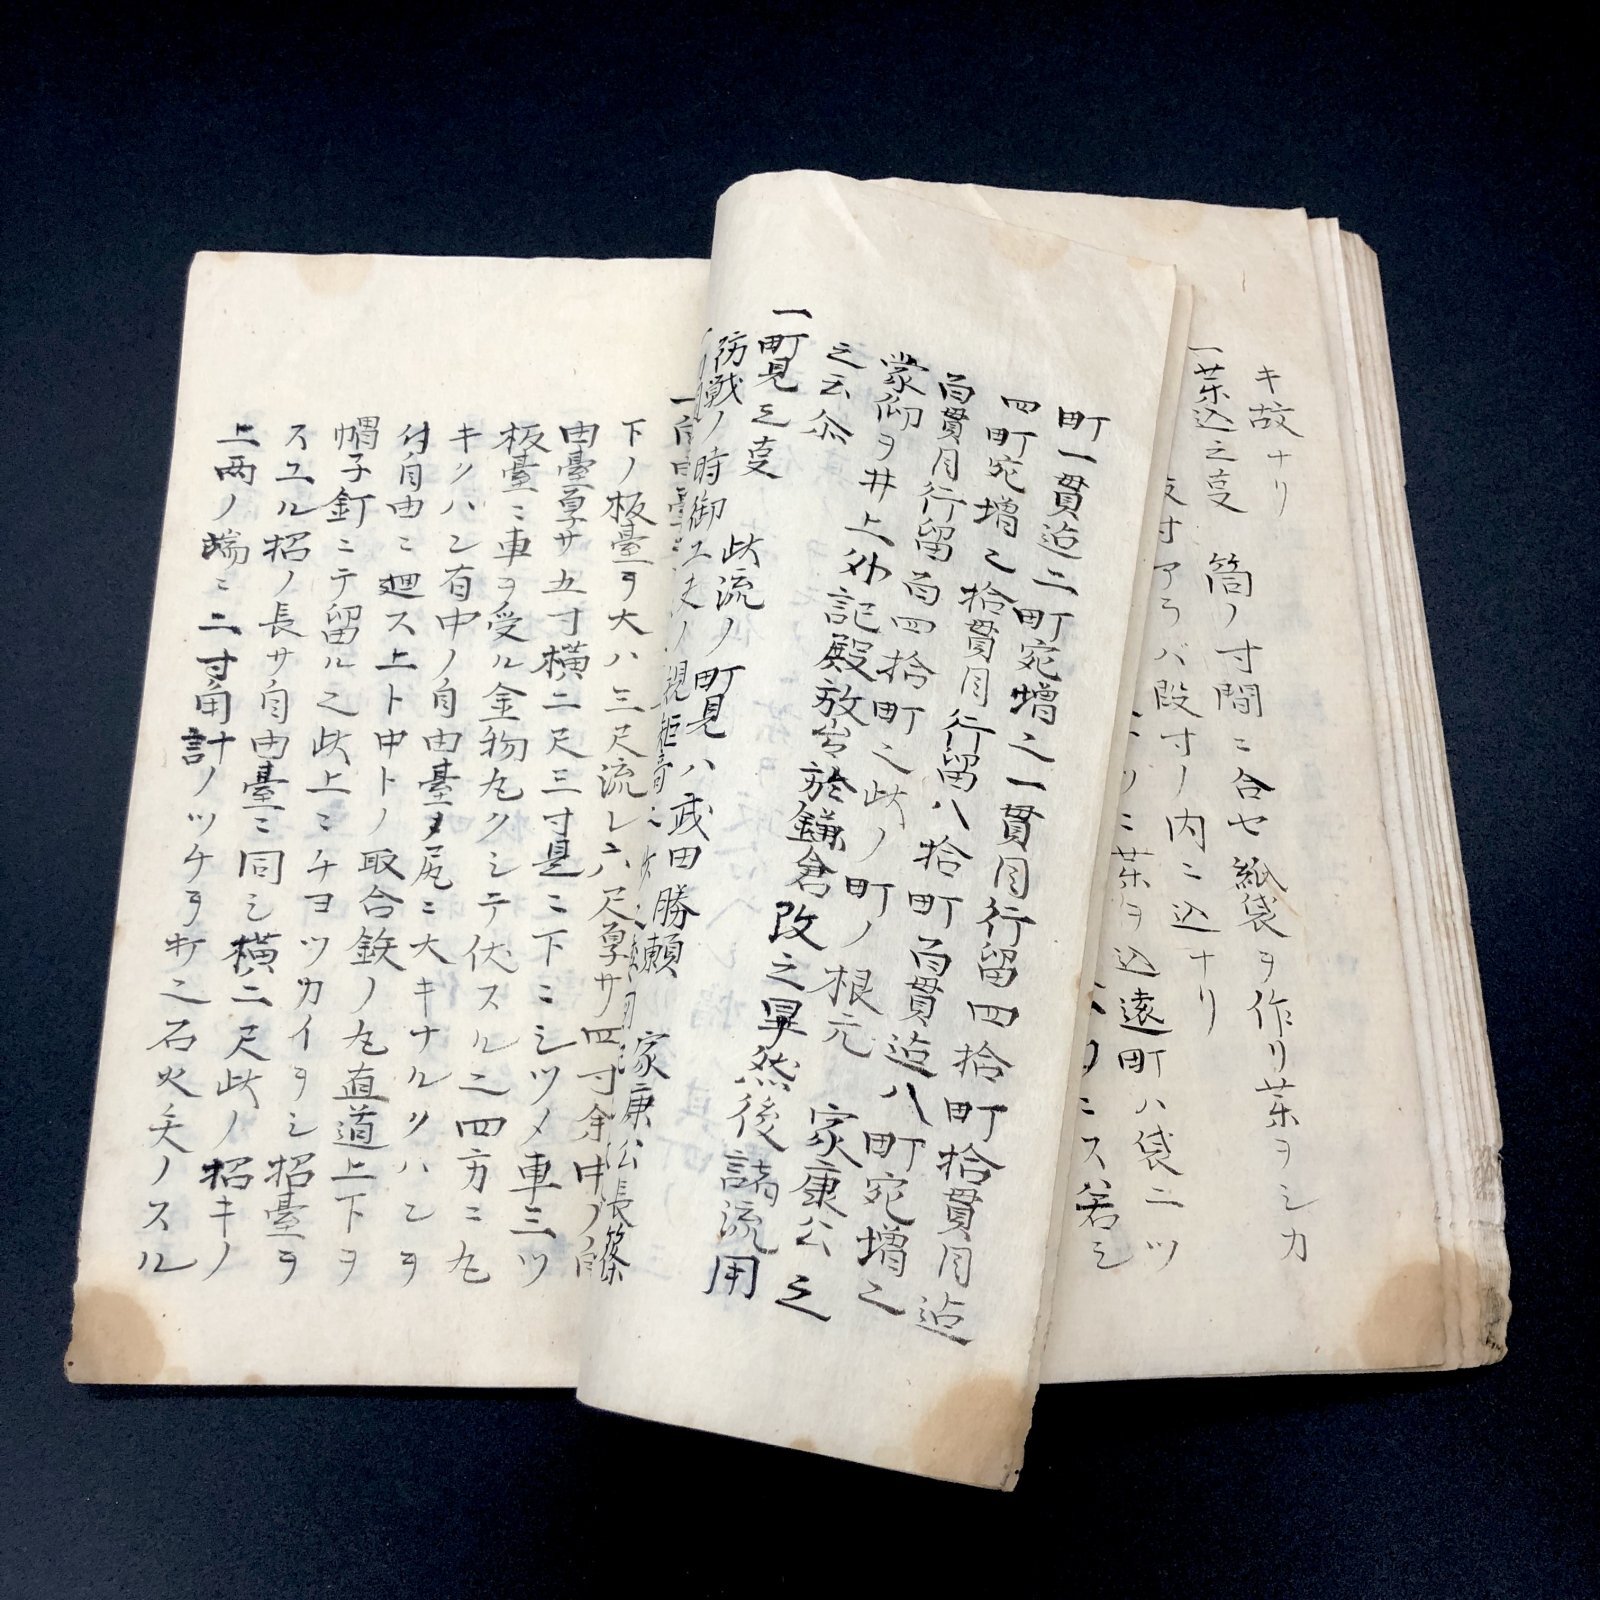 キ故ナリ
一薬込之事　筒ノ寸間ニ合セ紙袋ヲ作リ薬ヲシカ
寸アラバ段寸ノ内ニ込ナリ
ツニ薬ヲ込遠町ハ袋二ツ
ニス若シ
町一貫迠二町宛増之一貫目行留四拾町拾貫目迠
四町宛増之拾貫目行留八拾町百貫迠八町宛増之
百貫目行留百四拾町之此ノ町ノ根元　家康公之
蒙仰ヲ井上外記殿放出於鎌倉改之畢然後諸流用
之云尒
一町見之事　此流ノ町見ハ武田勝頼　家康公長篠
防戦ノ時御工夫ノ規矩
下ノ板臺ヲ大ハ三尺流レ六尺厚サ四寸余中ノ自
由臺厚サ五寸横二尺三寸是ニ下ニシツメ車三ツ
板臺ニ車ヲ受ル金物丸クシテ伏スル之四方ニ丸
キクハン有中ノ自由臺ヲ尻ニ大キナルクハンヲ
付自由ニ廻ス上ト中トノ取合鉄ノ丸直道上下ヲ
帽子釘ニテ留ル之此上ニチヨツカイヲシ招臺ヲ
スユル招ノ長サ自由臺ニ同シ横二尺此ノ招キノ
上両ノ端ニ二寸角計ノツチヲ打之石火矢ノスル